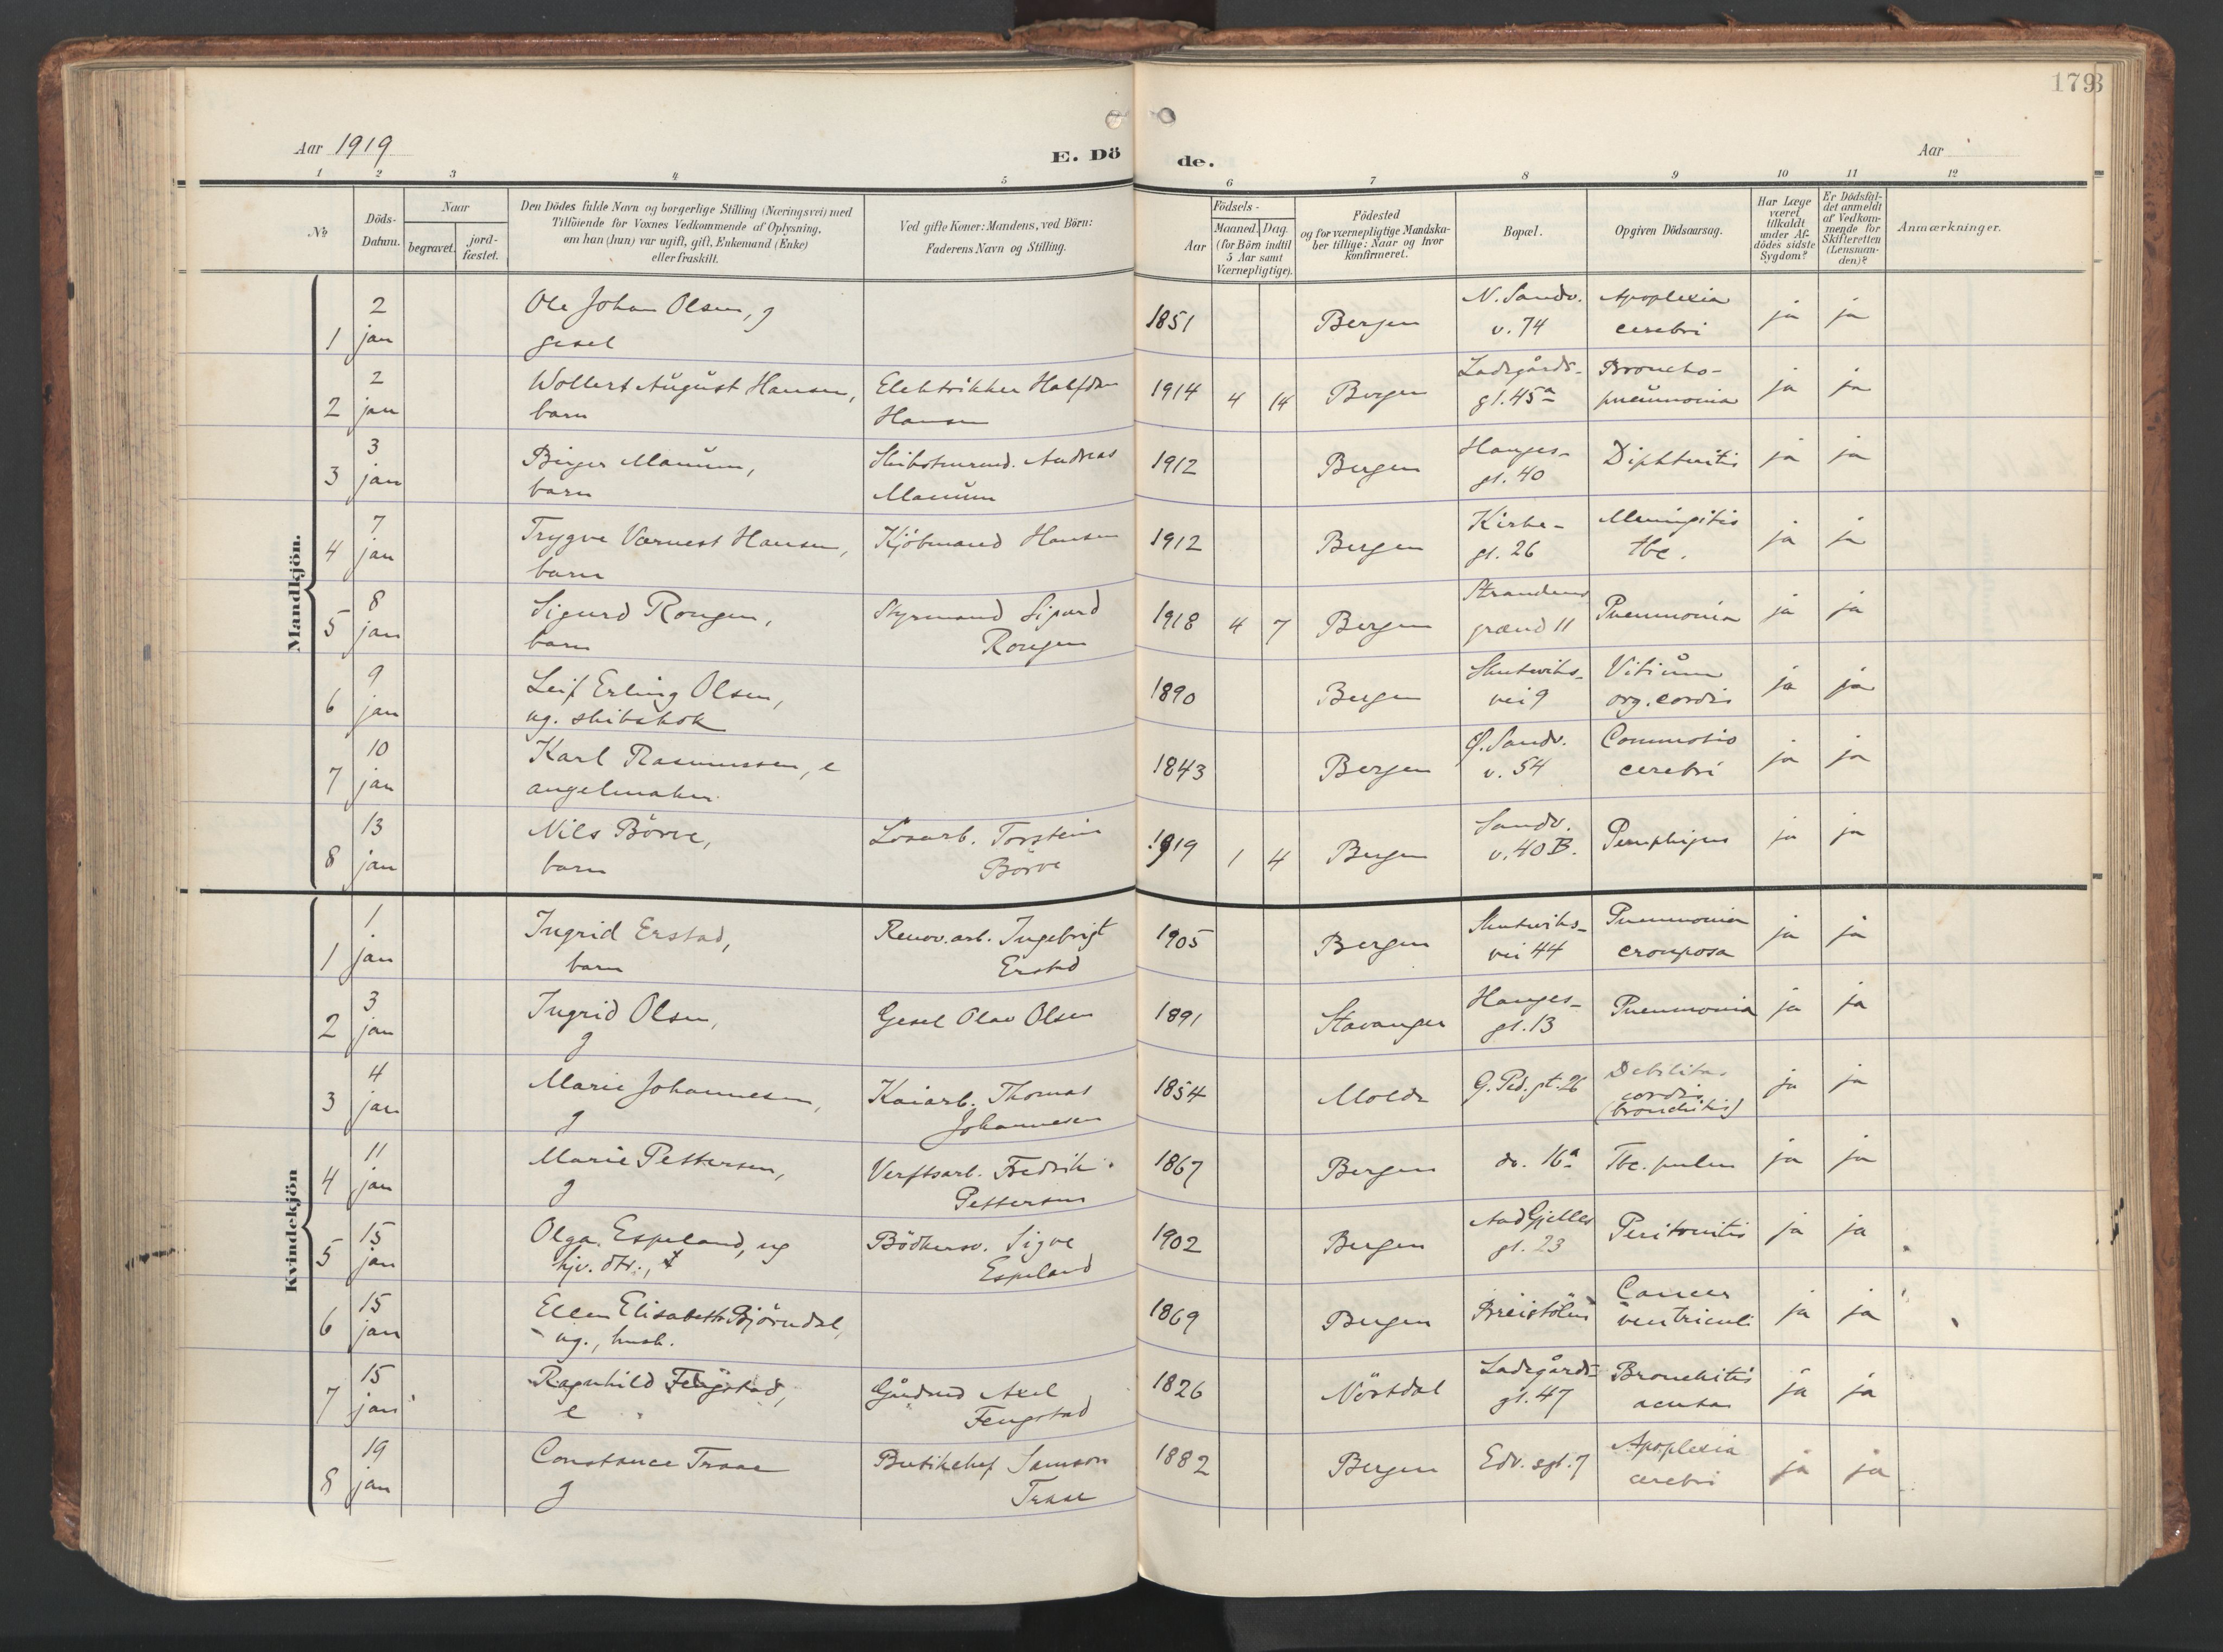 179
Aar 1919
E. Dö
de.
Aar
1 2 3 4 5 6 7 8 9 10 11 12
№
Döds-
Datum.
Naar
begravet.
jord-
fæstet.
Den Dödes fulde Navn og borgerlige Stilling (Næringsvei) med
Tilföiende for Voxnes Vedkommende af Oplysning,
om han (hun) var ugift, gift, Enkemand (Enke)
eller fraskilt.
Ved gifte Koner: Mandens, ved Börn:
Faderens Navn og Stilling.
Födsels-
Aar
Maaned. Dag.
(for Börn indtil
5 Aar samt
Værnepligtige).
Födested
og for værnepligtige Mandska-
ber tillige: Naar og hvor
konfirmeret.
Bopæl.
Opgiven Dödsaarsag.
Har Læge
været
tilkaldt
under Af-
dödes sidste
Sygdom?
Er Dödsfal-
det anmeldt
af Vedkom-
mende for
Skifteretten
(Lensman-
den)?
Anmærkninger.
Mandkjön.
1 2 jan Ole Johan Olsen, g 1851 Bergen N. Sandv. Apoplexia ja ja
gesel v. 74 cerebri
2 2 jan Wollert August Hansen, Elektrikker Halfdan 1914 4 14 Bergen Ladegårds- Broncho- ja ja
barn Hansen gt. 45a pneumonia
3 3 jan Birger Manum, Andreas 1912 Bergen Hauges- Diphteritis ja ja
barn Manum gt. 40
4 7 jan Trygve Hansen, Kjöbmand Hansen 1912 Bergen Kirke- Meningitis ja ja
barn gt. 26 tbc.
5 8 jan Sigurd Rongen, Styrmand Sigurd 1918 4 7 Bergen Pneumonia ja ja
barn Rongen grænd 11
6 9 jan Leif Erling Olsen, 1890 Bergen Skuteviks- Vitium ja ja
ug. skibskok vei 9 org. cordis
7 10 jan Karl Rasmussen, e 1843 Bergen Ø. Sandv. Commotio ja ja
angelmaker v. 54 cerebri
8 13 jan Nils Börve, Losarb. Torstein 1919 1 4 Bergen Sandv. Pemphigus ja ja
barn Börve v. 40 B.
Kvindekjön
1 1 jan Ingrid Erstad, Renov.arb. Ingebrigt 1905 Bergen Skuteviks- Pneumonia ja ja
barn Erstad vei 44 crouposa
2 3 jan Ingrid Olsen, Gesel Olav Olsen 1891 Stavanger Hauges- Pneumonia ja ja
g gt. 13
3 4 jan Marie Johannesen, Kaiarb. Thomas 1854 Molde G. Ped. gt. 26 Debilitas ja ja
g Johannesen cordis
(bronchitis)
4 11 jan Marie Pettersen, Verftsarb. Fredrik 1867 Bergen do. 16a Tbc. pulm ja ja
g Pettersen
5 15 jan Olga Espeland, ug Bödkersv. Sigve 1902 Bergen Aad Gjelles Peritonitis ja ja
hjv. dtr., Espeland gt. 23
6 15 jan Ellen Elisabeth Björndal, 1869 Bergen Breistölen Cancer ja ja
ug., hush. ventriculi
7 15 jan Ragnhild Fengstad, Axel 1826 Nörtdal Ladegårds- Bronchitis ja ja
e Fengstad gt. 47 acuta
8 19 jan Constance Traae Butikchef Samson 1882 Bergen Edv. sgt. 7 Apoplexia ja ja
g Traae cerebri